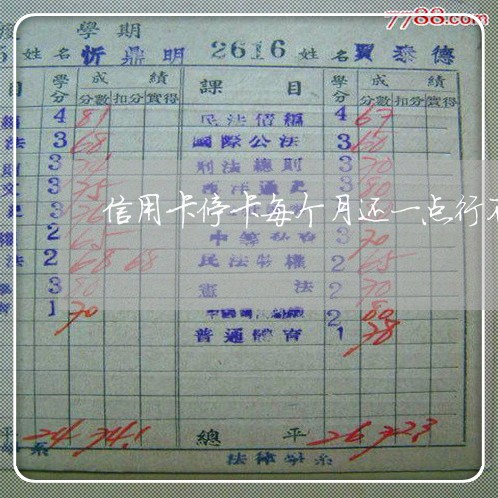 7788.com
學期
姓名 忻鼎明 2616 姓名 賈泰德
目 學分 成績 課目 學分 成績
分數 扣分 實得 分數 扣分 實得
4 81 民法債編 4 67
法 3 68 國際公法 3 60
則 3 刑法總則 3 70
文 3 75 3 80
史 3
權 2 65 3 70
法 2 68 68 民法物權 2 65
3 80 憲法 2 70
育 1 70 2 80
普通體育 1 78
信用卡停卡每个月还一点行
平 24 74.1 總平 26 72.3
系 法律學系